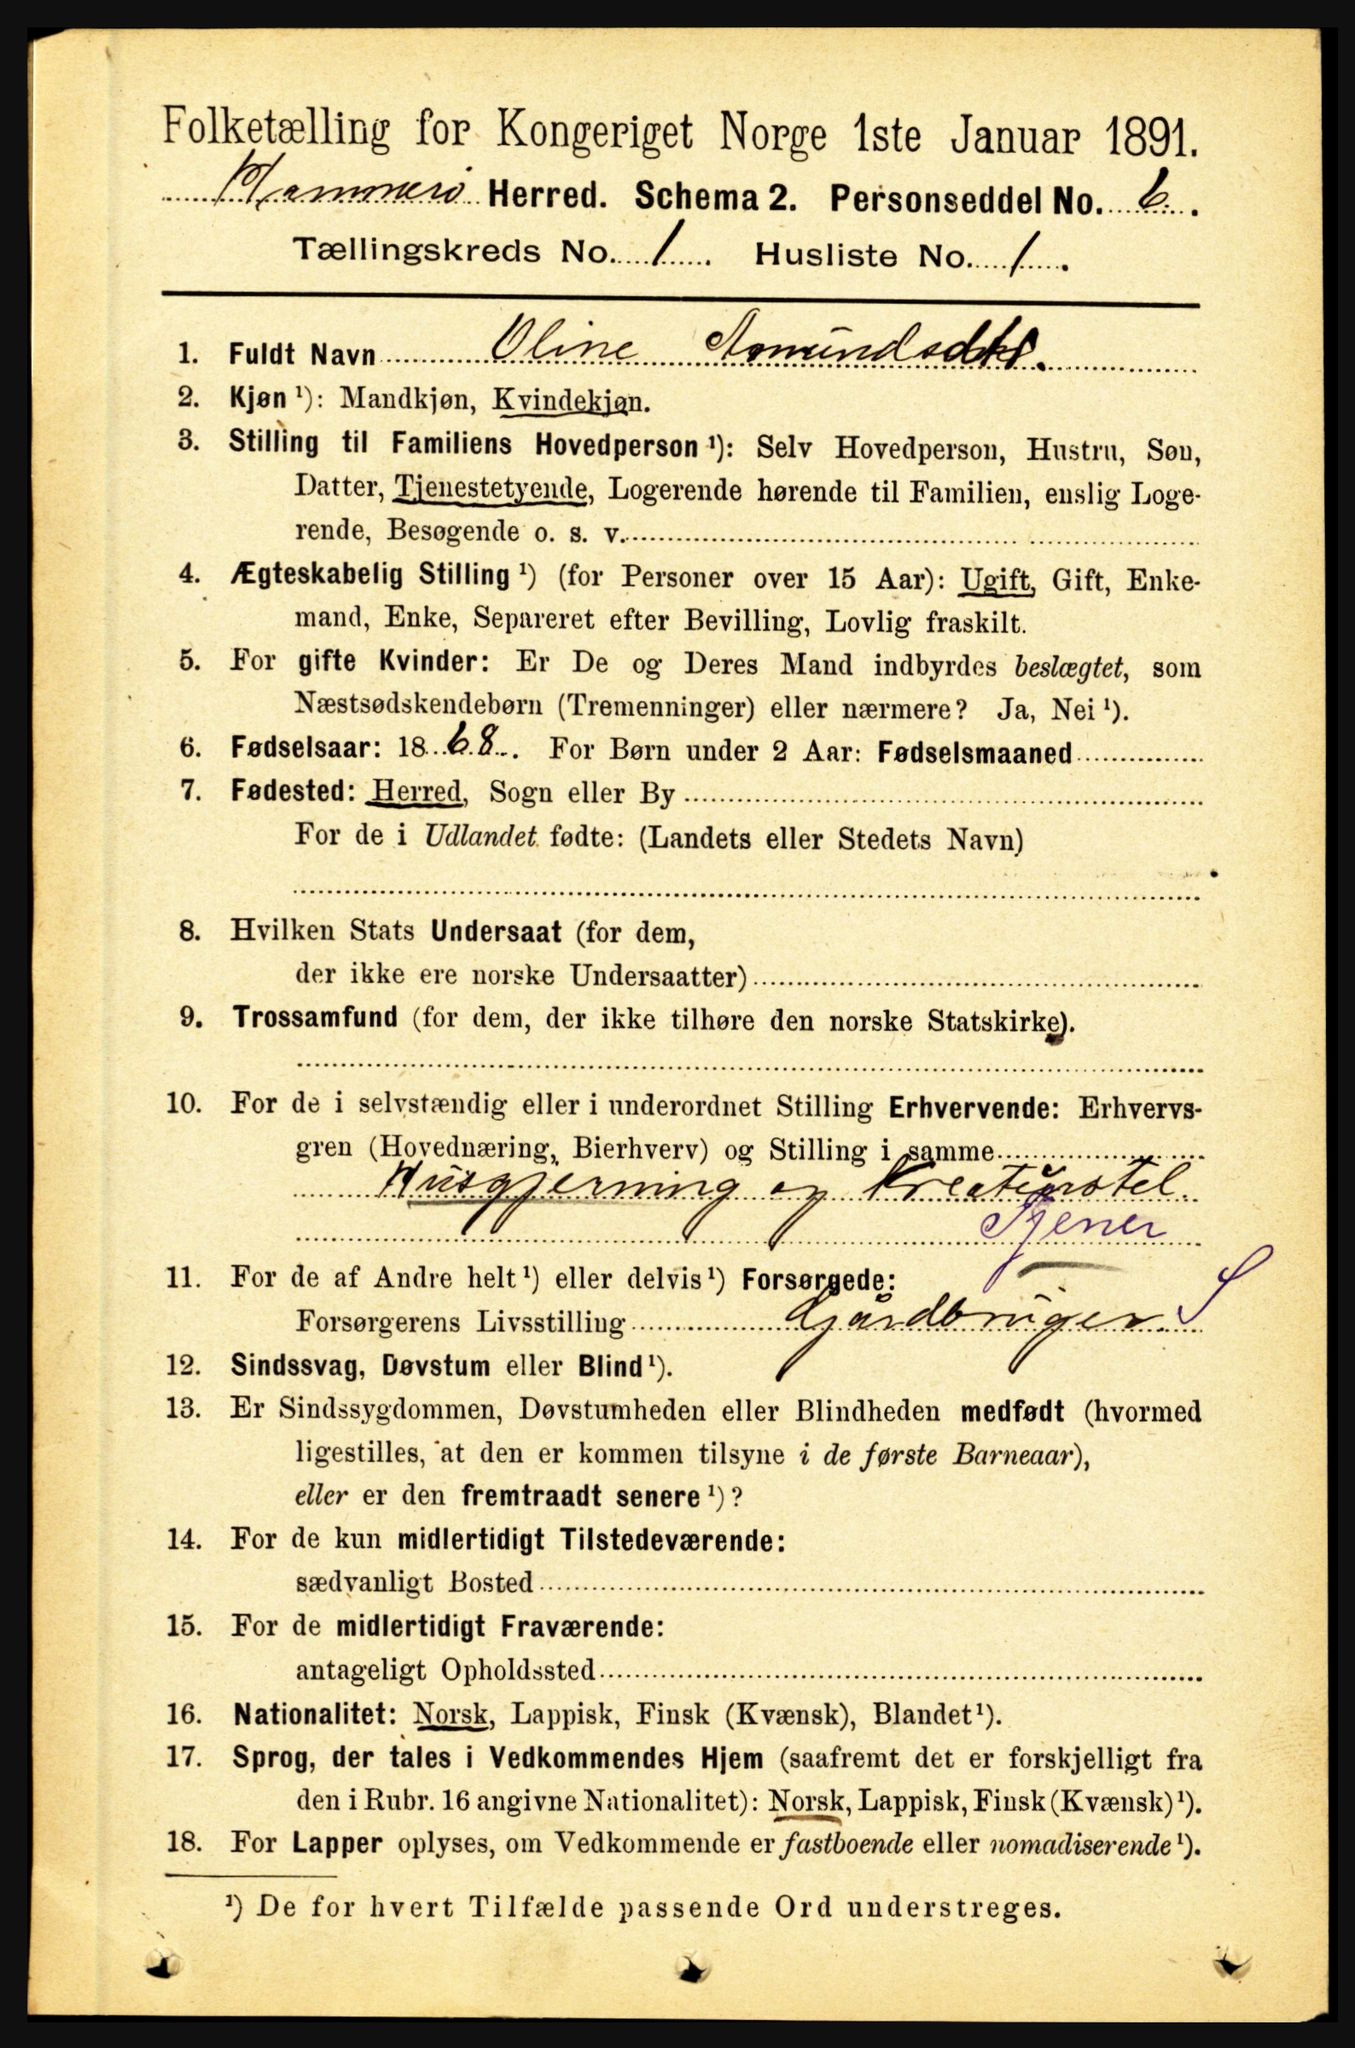 Folketælling for Kongeriget Norge 1ste Januar 1891.
Hammerø Herred. Schema 2. Personseddel No. 6.
Tællingskreds No. 1. Husliste No. 1.
1. Fuldt Navn Oline Amundsdtr.
2. Kjøn ¹): Mandkjøn, Kvindekjøn.
3. Stilling til Familiens Hovedperson ¹): Selv Hovedperson, Hustru, Søn,
Datter, Tjenestetyende, Logerende hørende til Familien, enslig Loge-
rende, Besøgende o. s. v.
4. Ægteskabelig Stilling ¹) (for Personer over 15 Aar): Ugift, Gift, Enke-
mand, Enke, Separeret efter Bevilling, Lovlig fraskilt.
5. For gifte Kvinder: Er De og Deres Mand indbyrdes beslægtet, som
Næstsødskendebørn (Tremenninger) eller nærmere? Ja, Nei ¹).
6. Fødselsaar: 1868. For Børn under 2 Aar: Fødselsmaaned
7. Fødested: Herred, Sogn eller By
For de i Udlandet fødte: (Landets eller Stedets Navn)
8. Hvilken Stats Undersaat (for dem,
der ikke ere norske Undersaatter)
9. Trossamfund (for dem, der ikke tilhøre den norske Statskirke).
10. For de i selvstændig eller i underordnet Stilling Erhvervende: Erhvervs-
gren (Hovednæring, Bierhverv) og Stilling i samme
Husgjerning og Kreaturstel.
Tjener
11. For de af Andre helt ¹) eller delvis ¹) Forsørgede:
Forsørgerens Livsstilling Gårdbruger. S
12. Sindssvag, Døvstum eller Blind ¹).
13. Er Sindssygdommen, Døvstumheden eller Blindheden medfødt (hvormed
ligestilles, at den er kommen tilsyne i de første Barneaar),
eller er den fremtraadt senere ¹)?
14. For de kun midlertidigt Tilstedeværende:
sædvanligt Bosted
15. For de midlertidigt Fraværende:
antageligt Opholdssted
16. Nationalitet: Norsk, Lappisk, Finsk (Kvænsk), Blandet ¹).
17. Sprog, der tales i Vedkommendes Hjem (saafremt det er forskjelligt fra
den i Rubr. 16 angivne Nationalitet): Norsk, Lappisk, Finsk (Kvænsk) ¹).
18. For Lapper oplyses, om Vedkommende er fastboende eller nomadiserende ¹).
¹) De for hvert Tilfælde passende Ord understreges.